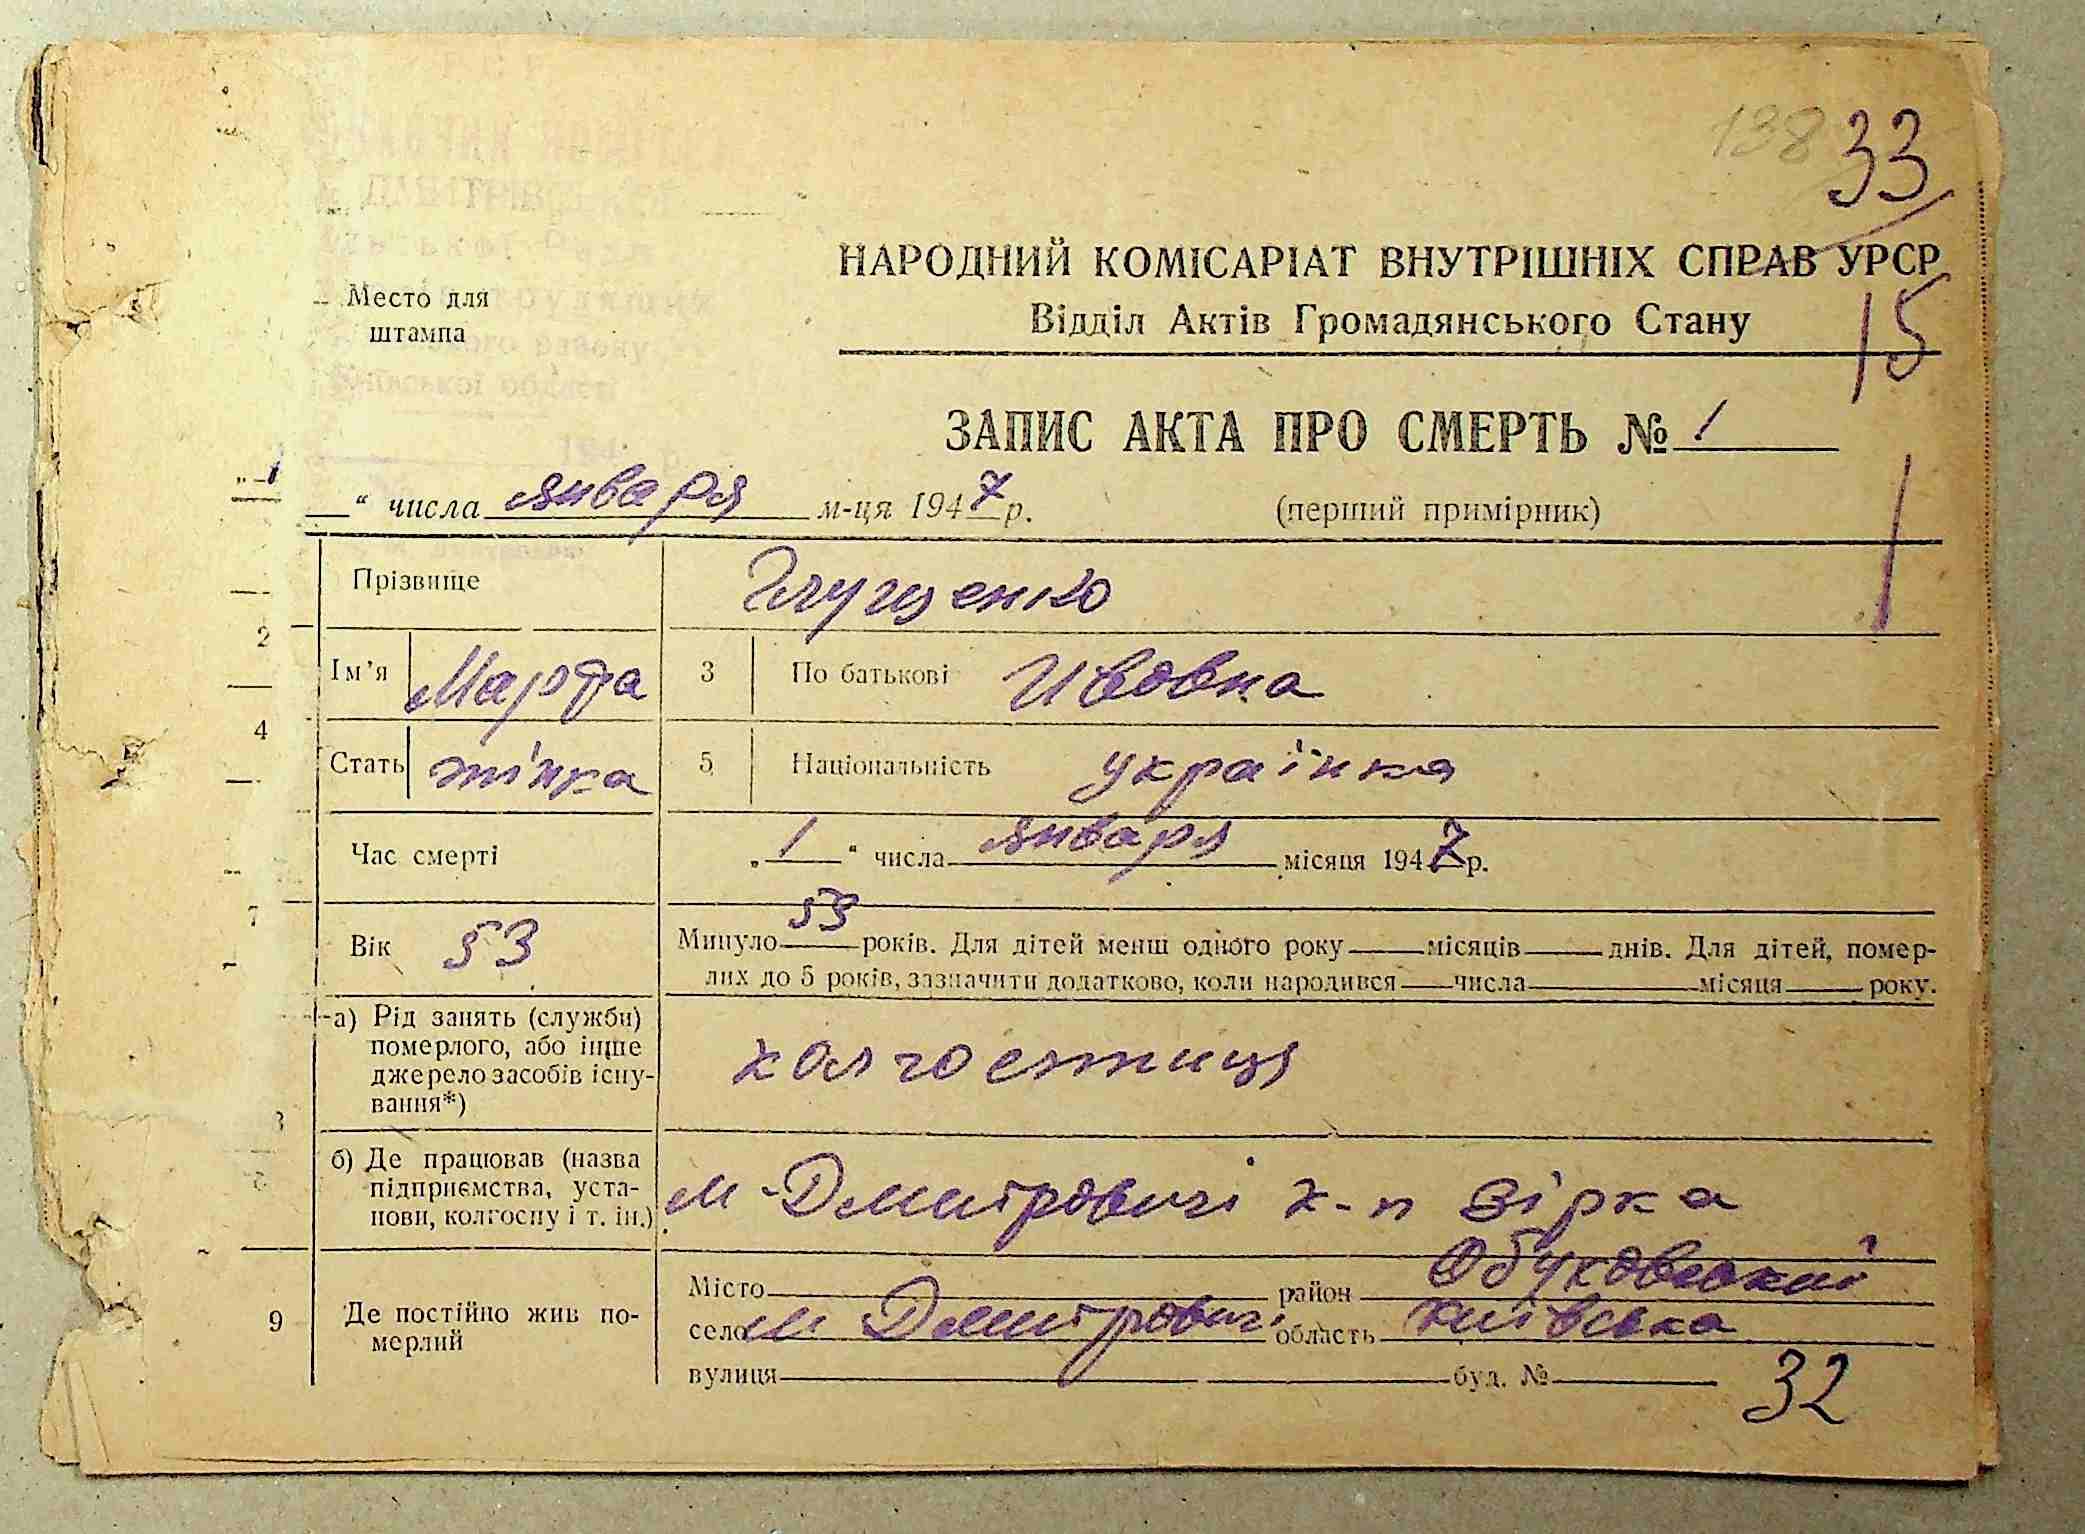 138 33
НАРОДНИЙ КОМІСАРІАТ ВНУТРІШНІХ СПРАВ УРСР
Відділ Актів Громадянського Стану
15
Место для
штампа
ЗАПИС АКТА ПРО СМЕРТЬ № 1
„1“ числа января м-ця 1947 р.
(перший примірник)
1
Прізвище Глущенко
2 Ім'я Марфа 3 По батькові Ивовна
4 Стать жінка 5 Національність українка
Час смерті „1“ числа января місяця 1947 р.
7 Вік 53 Минуло 53 років. Для дітей менш одного року місяців днів. Для дітей, помер-
лих до 5 років, зазначити додатково, коли народився числа місяця року.
а) Рід занять (служби)
померлого, або інше
джерело засобів існу-
вання*)
колгостниця
б) Де працював (назва
підприємства, уста-
нови, колгоспу і т. ін.)
м-Дмитровичі к-п Зірка
9 Де постійно жив по-
мерлий
Місто район Обуховський
село м Дмитровичі область київська
вулиця буд. №
32